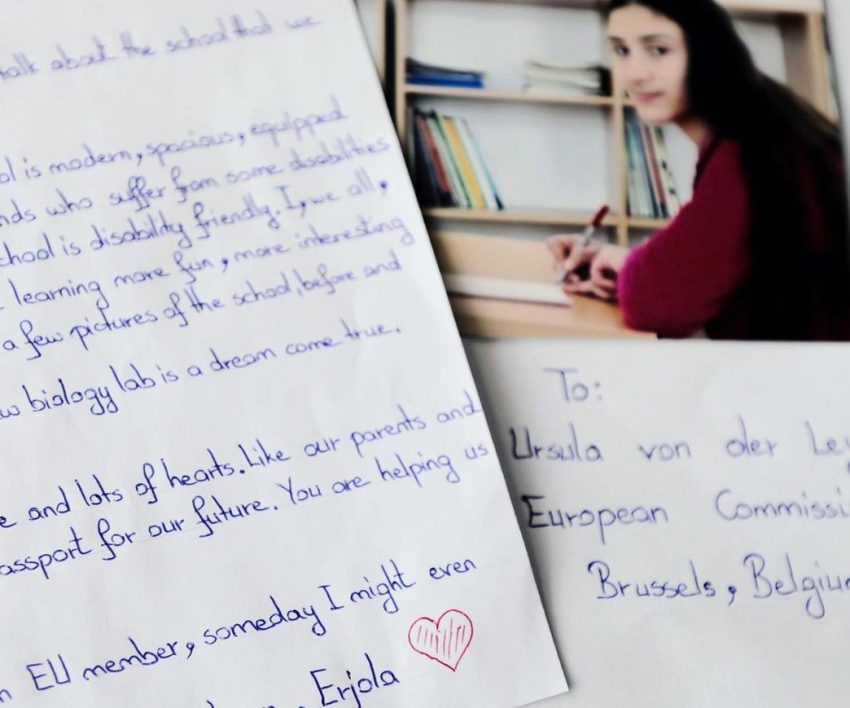 talk about the school that we
is modern, spacious, equipped
who suffer from some disabilities
school is disability friendly. I, we all,
learning more fun, more interesting
a few pictures of the school, before and
biology lab is a dream come true.
and lots of hearts. Like our parents and
for our future. You are helping us
EU member, someday I might even
Erjola
To:
Ursula von der
European
Brussels,